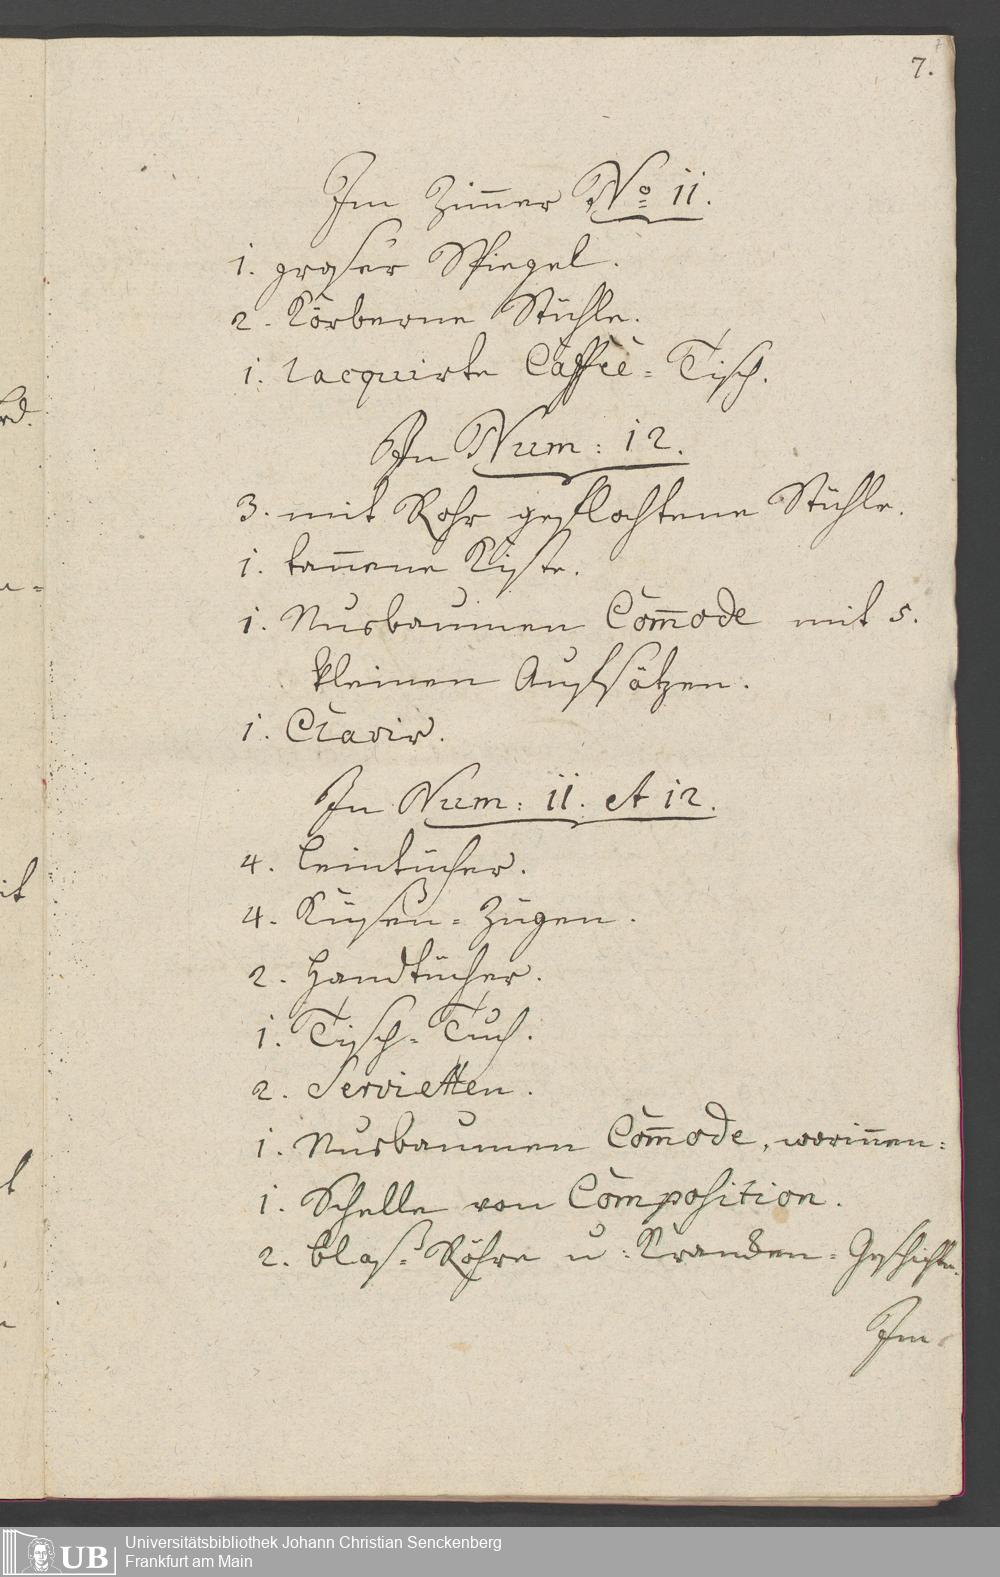 7.
Im Zim̅er No 11.
1. groser Spiegel.
2. Körberne Stühle.
1. lacquirte Caffée-Tisch.
In Num: 12.
3. mit Rohr geflochtene Stühle.
1. tan̅ene Kiste.
1. Nusbaumen Com̅ode mit 5.
kleinen Aufsätzen.
1. Clavir.
In Num: 11. et 12.
4. Leintücher.
4. Küßen-Zügen.
2. Handtücher.
1. Tisch-Tuch.
2. Servietten.
1. Nusbaumen Com̅ode, worin̅en:
1. Schelle von Composition.
2. Blaß-Röhre u: Geschichte.
Im
Universitätsbibliothek Johann Christian Senckenberg
UB Frankfurt am Main